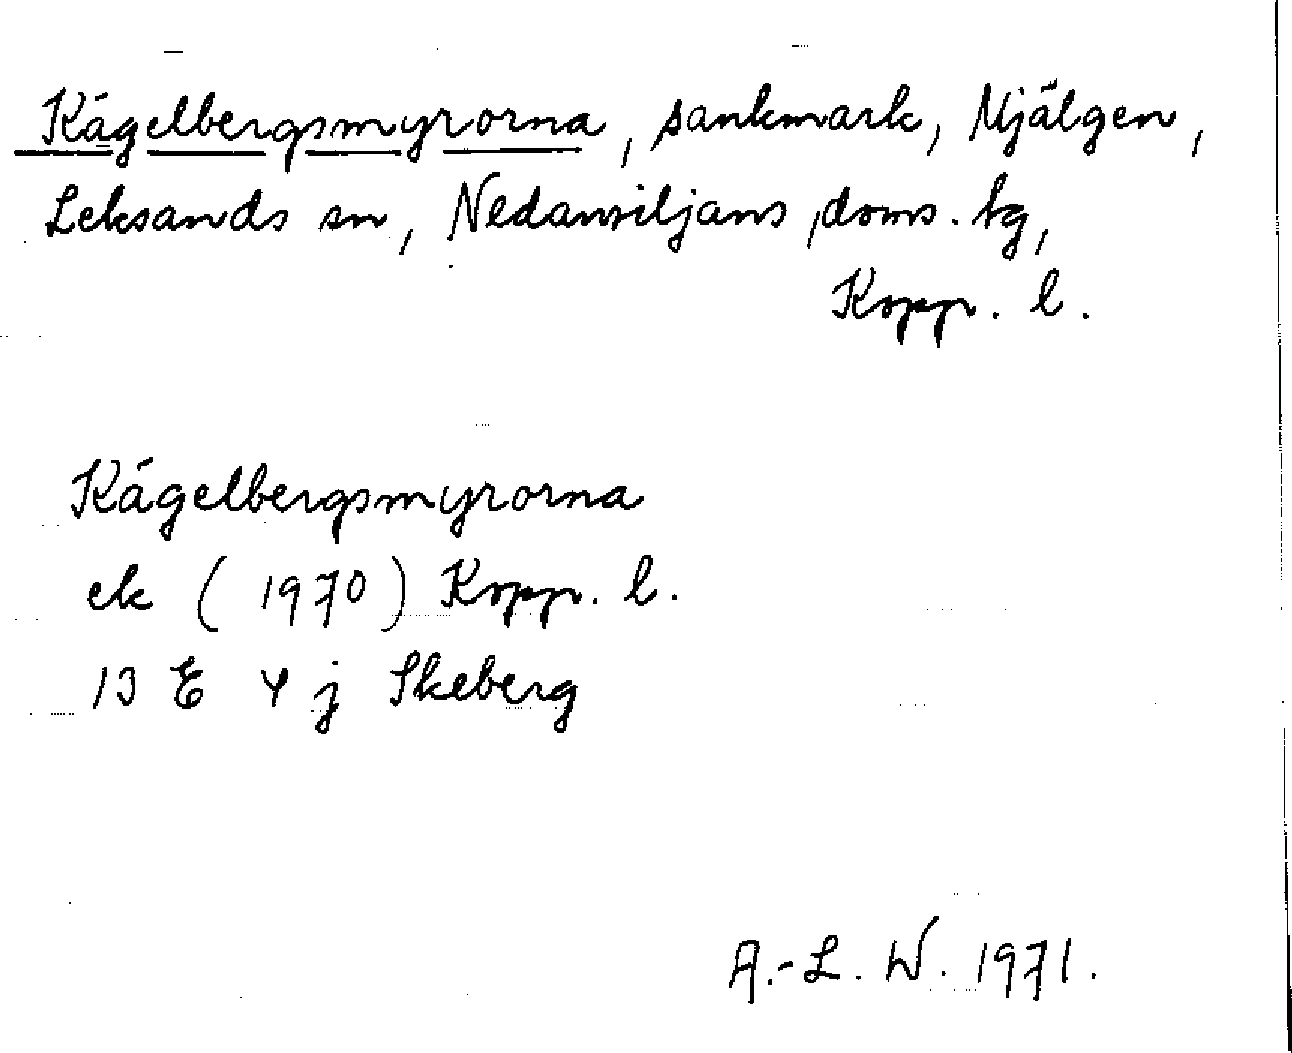 Kägelbergsmyrorna, sankmark, Mjälgen,
Leksands sn, Nedansiljans doms. tg,
Kopp. l.
Kägelbergsmyrorna
ek (1970) Kopp. l.
13 E 4 j Skeberg
A.-L. W. 1971.